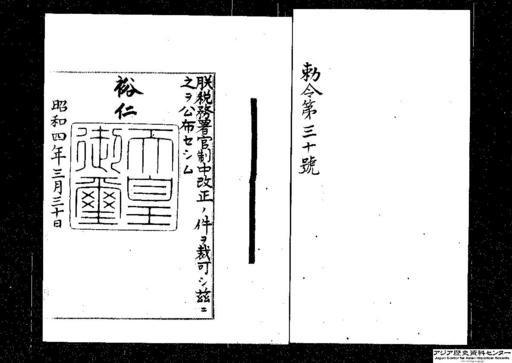 勅令第三十號
朕税務署官制中改正ノ件ヲ裁可シ茲ニ
之ヲ公布セシム
裕仁
天皇
御璽
昭和四年三月三十日
アジア歴史資料センター
Japan Center for Asian Historical Records